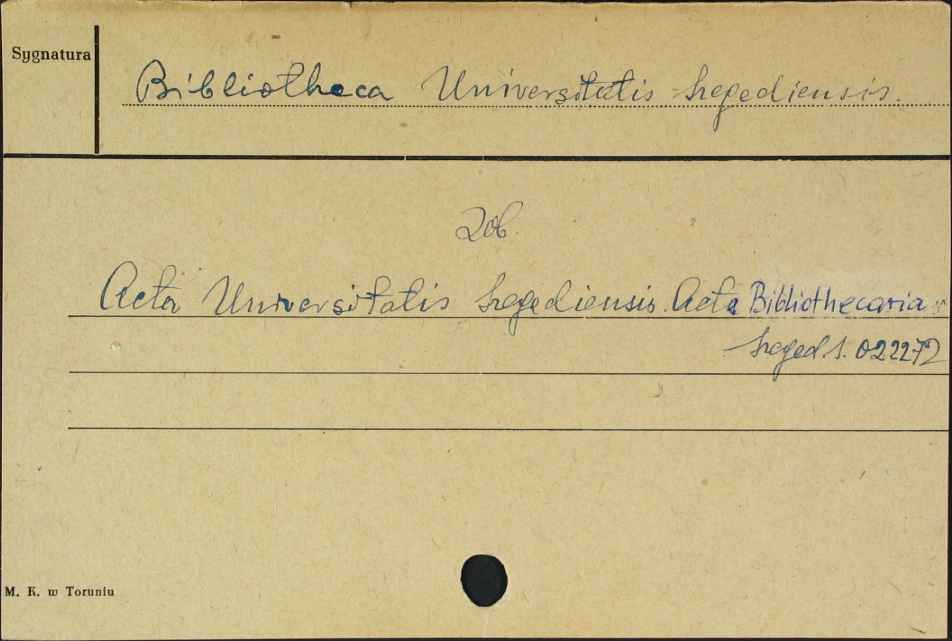 Sygnatura
Bibliotheca Universitatis Szegediensis.
Zob.
Acta Universitatis Szegediensis. Acta Bibliothecaria
Szeged S. 022272
M. K. w Toruniu